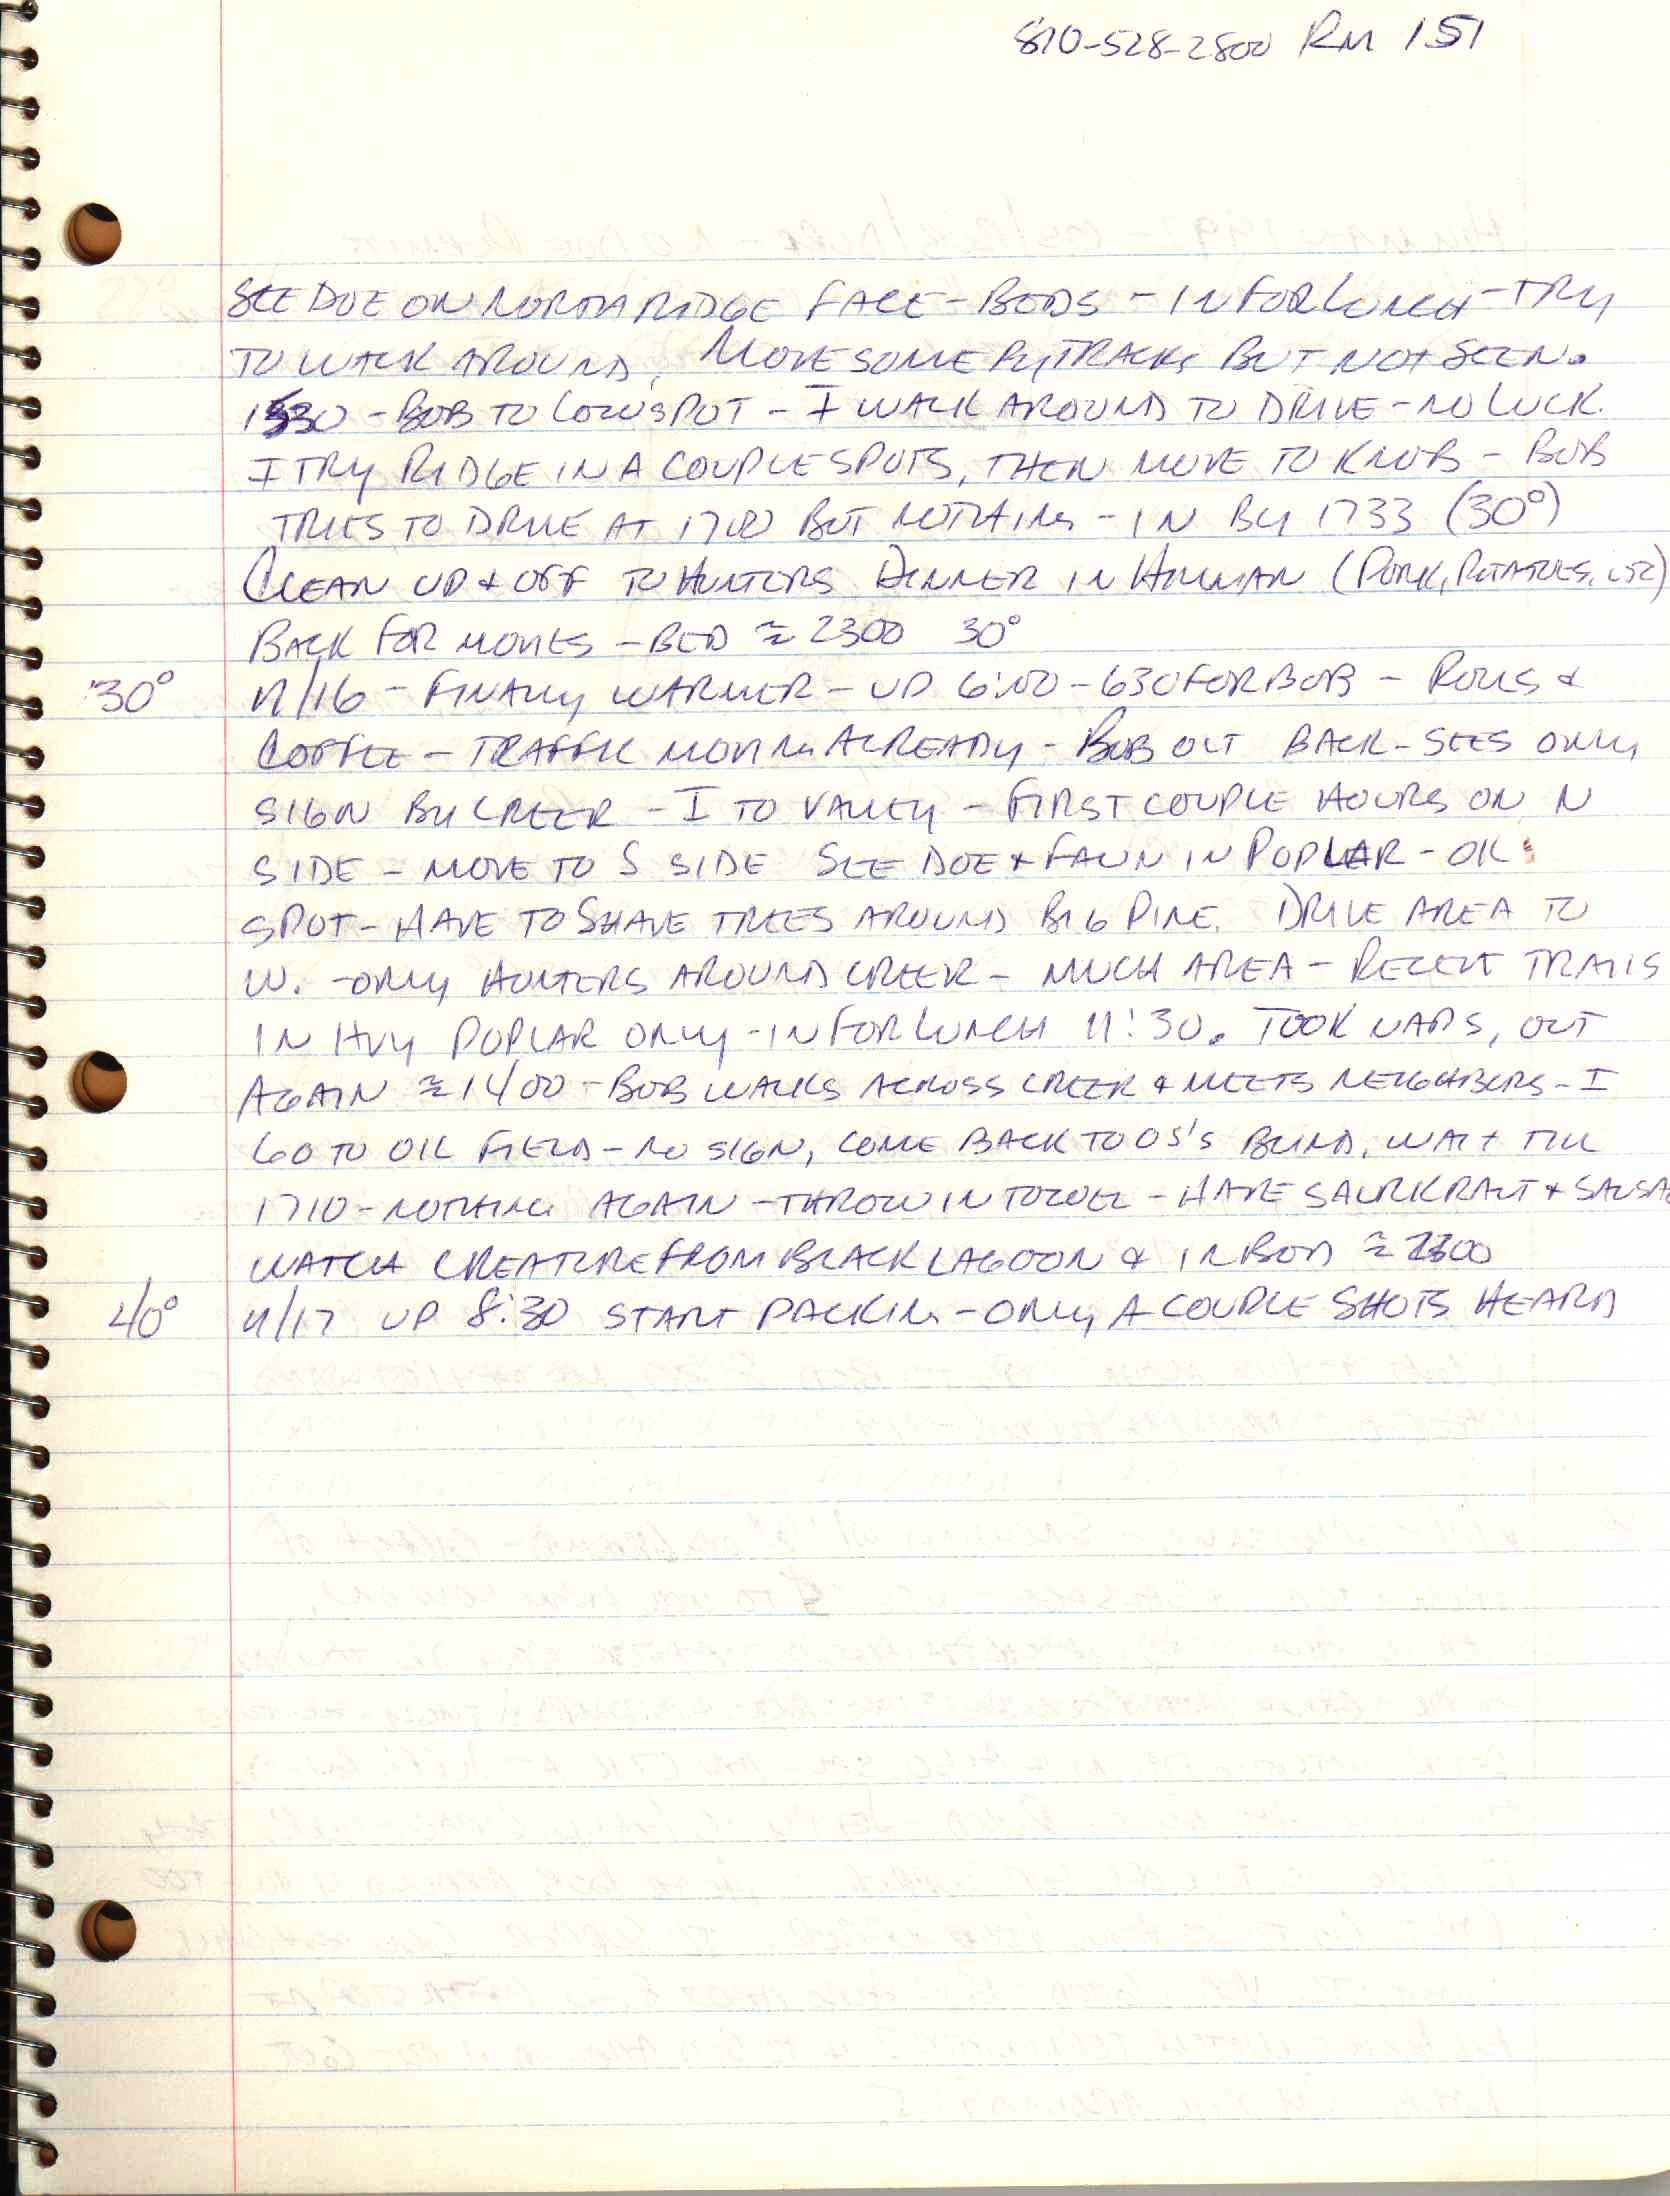 810-528-2800 RM 151
SEE DOE ON NORTH RIDGE FACE - BEDS - IN FOR LUNCH - TRY
TO WALK AROUND, MOVE SOME BY TRACKS BUT NOT SEEN.
1530 - BOB TO LOW SPOT - I WALK AROUND TO DRIVE - NO LUCK.
I TRY RIDGE IN A COUPLE SPOTS, THEN MOVE TO KNOB - BOB
TRIES TO DRIVE AT 1700 BUT NOTHING - IN BY 1733 (30°)
CLEAN UP & OFF TO HUNTERS DINNER IN HILLMAN (PORK, POTATOES, ETC)
BACK FOR MOVIES - BED ≈ 2300 30°
30° 11/16 - FINALLY WARMER - UP 6:00 - 630 FOR BOB - ROLLS &
COFFEE - TRAFFIC MOVING ALREADY - BOB OUT BACK - SEES ONLY
SIGN BY CREEK - I TO VALLEY - FIRST COUPLE HOURS ON N
SIDE - MOVE TO S SIDE SEE DOE & FAWN IN POPLAR - OK
SPOT - HAVE TO SHAVE TREES AROUND BIG PINE. DRIVE AREA TO
W. - ONLY HUNTERS AROUND CREEK - MUCH AREA - RECENT TRAILS
IN HVY POPLAR ONLY - IN FOR LUNCH 11:30. TOOK NAPS, OUT
AGAIN ≈ 1400 - BOB WALKS ACROSS CREEK & MEETS NEIGHBORS - I
GO TO OIL FIELD - NO SIGN, COME BACK TO OS'S BLIND, WAIT TILL
1710 - NOTHING AGAIN - THROW IN TOWEL - HAVE SAURKRAUT & SAUSAG
WATCH CREATURE FROM BLACK LAGOON & IN BED ≈ 2300
40° 11/17 UP 8:30 START PACKING - ONLY A COUPLE SHOTS HEARD